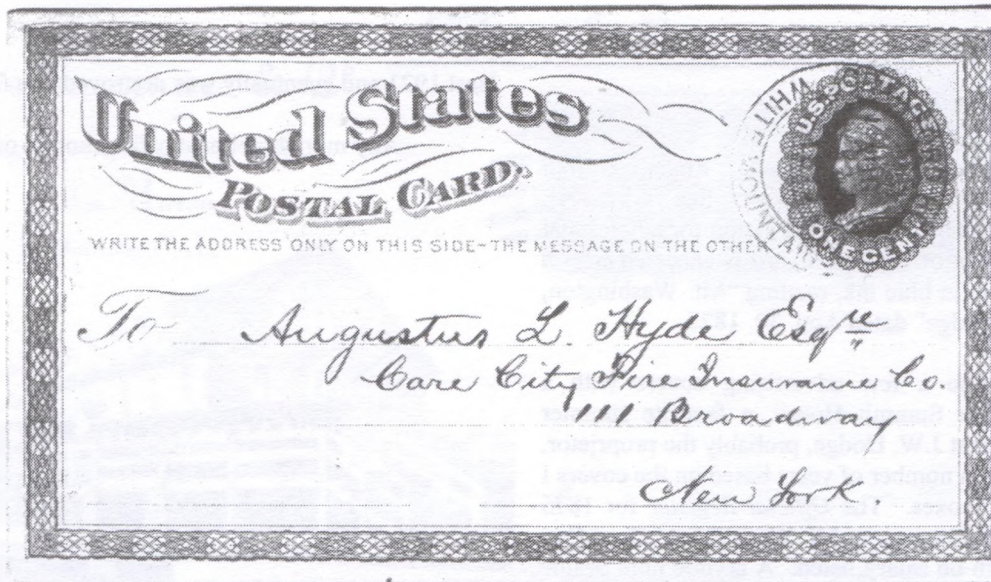 United States
POSTAL CARD.
WHITE MOUNTAIN
U.S. POSTAGE
ONE CENT
WRITE THE ADDRESS ONLY ON THIS SIDE - THE MESSAGE ON THE OTHER
To Augustus L. Hyde Esqre
Care City Fire Insurance Co.
111 Broadway
New York.